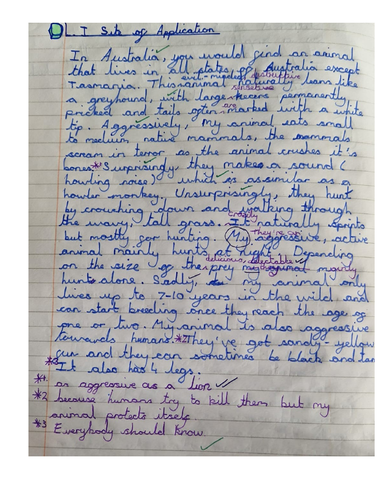 L.I Site of Application
In Australia, you would find an animal
that lives in all states of Australia except
Tasmania. This evil-minded destructive animal naturally looks like
a greyhound, with large sensitive ears permanently
pricked and tails often are marked with a white
tip. Aggressively, my animal eats small
to medium native mammals, the mammals
scream in terror as the animal crushes it's
bones *1 Surprisingly, they make a sound (
howling noise) which is as similar as a
howler monkey. Unsurprisingly, they hunt
by crouching down and walking through
the wavy, tall grass. It naturally sprints
but mostly for hunting. My aggressive, active
animal mainly hunts at night. Depending
on the size of the delicious, delectable prey my animal
hunts alone. Sadly, my animal only
lives up to 7-10 years in the wild and
can start breeding once they reach the age of
one or two. My animal is also aggressive
towards humans. *2 They've got sandy-yellow
fur and they can sometimes be black and tan
*3 It also has 4 legs.
*1 as aggressive as a lion
*2 because humans try to kill them but my
animal protects itself
*3 Everybody should know